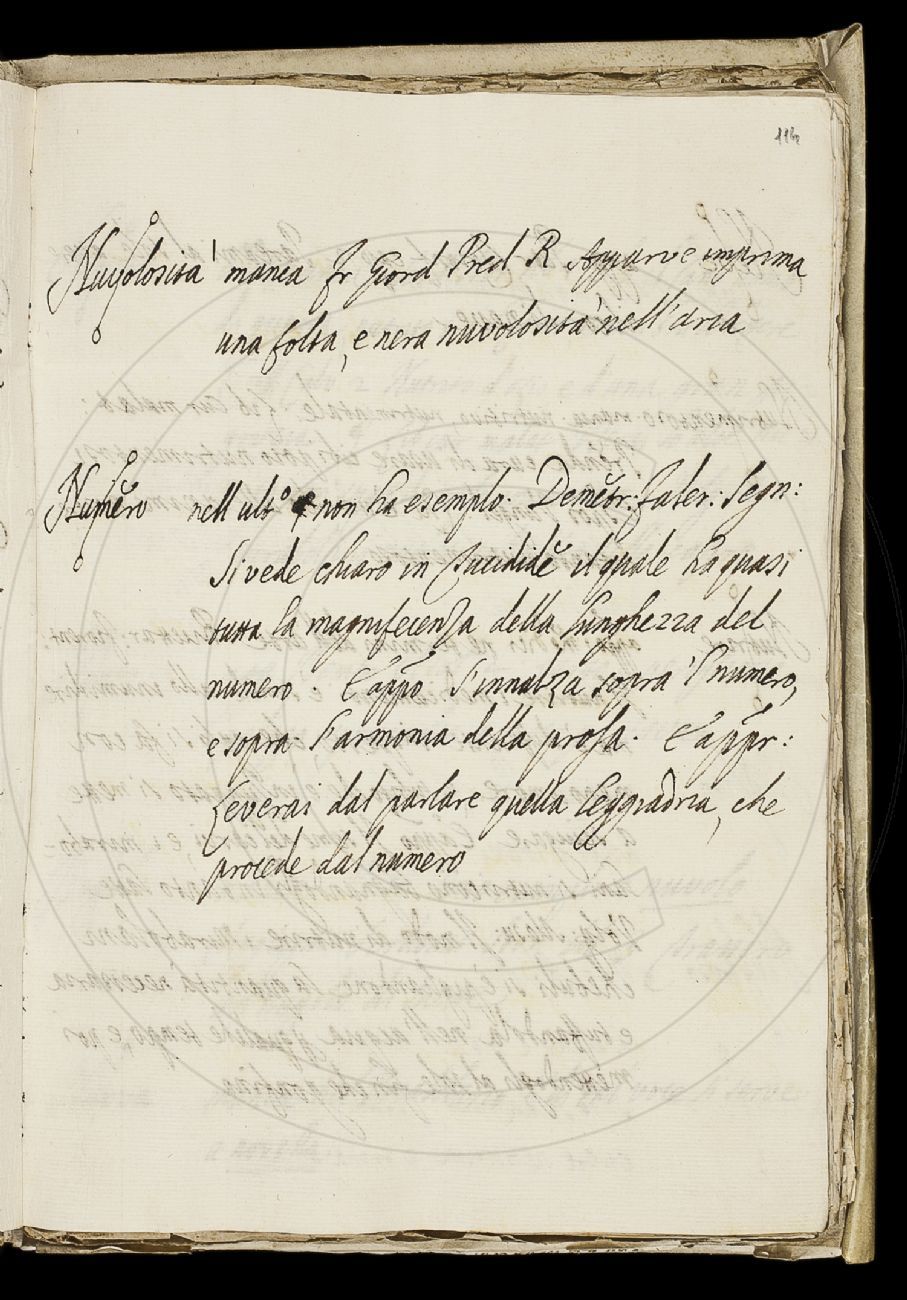 Nuvolosità manca Fr Giord Pred R Apparve imprima
una folta, e nera nuvolosità nell'aria
Numéro nell ult° non ha esemplo. Demétr: Faler: Segn:
Si vede chiaro in Tucididé il quale ha quasi
tutta la magnificenza della lunghezza del
numero E app° S'innalza sopra 'l numero,
e sopra l'armonia della prosa. E appr:
Leverai dal parlare quella leggiadria, che
procede dal numero